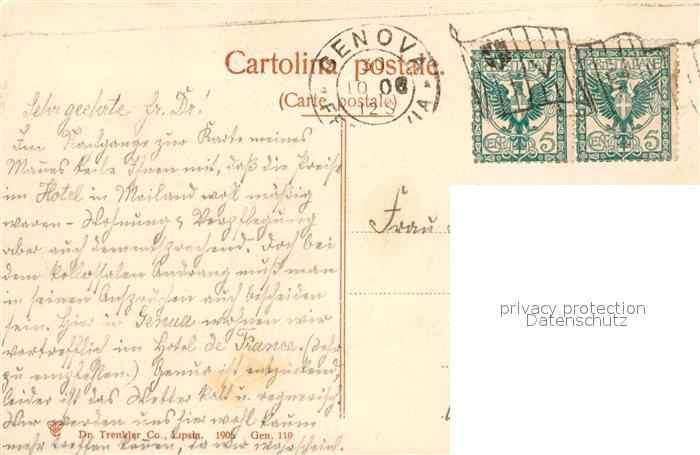 GENOVA
FERROVIA
10 06
12S
POSTE ITALIANE
CENT 5
CENT 5
Cartolina postale.
(Carte postale)
Sehr geehrte Fr. Dr!
Im Nachgange zur Karte meines
Mannes teile Ihnen mit, daß die Preise
im Hotel in Mailand wohl mäßig
waren - Wohnung & Verpflegung
aber auch dementsprechend. Doch bei
dem kollossalen Andrang muß man
in seinen Ansprüchen auch bescheiden
sein. Hier in Genua wohnen wir
vortrefflich im Hotel de France. (Sehr
zu empfehlen.) Genua ist entzückend,
leider ist das Wetter kalt u. regnerisch.
Wir werden uns hier wohl kaum
mehr treffen können, da wir wahrschein-
Frau
privacy protection
Datenschutz
Dr. Trenkler Co., Lipsia. 1905 Gen. 119